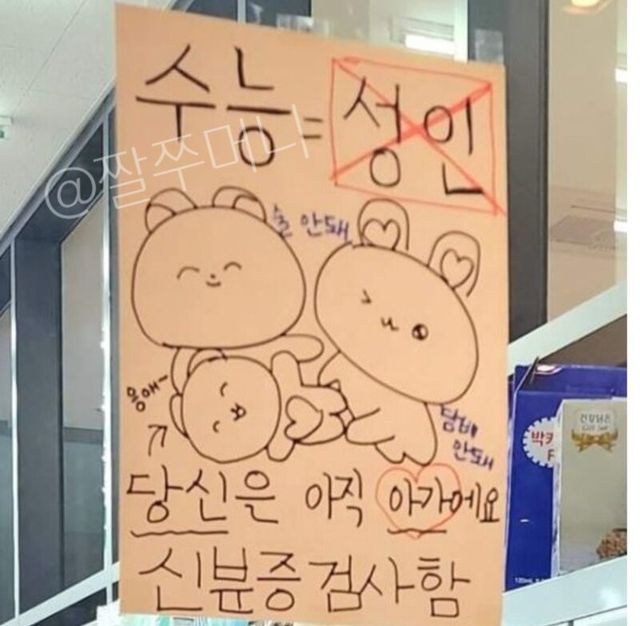 수능 = 성인
@짤쭈머니
술 안돼
응애~
담배
안돼
당신은 아직 아가에요
신분증 검사함
박카
F
건강담은